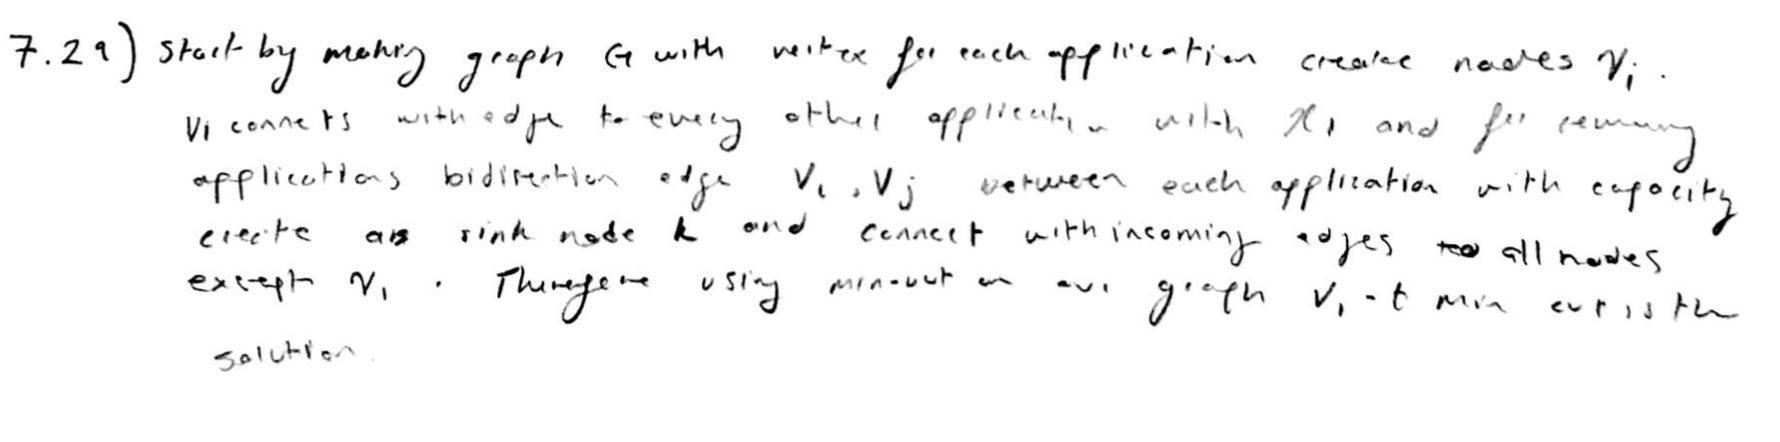 7.29) Start by making graph G with vertex for each application create nodes Vi.
Vi connects with edge to every other application with x1 and for remaining
applications bidirection edge Vi, Vj between each application with capacity
create as sink node k and connect with incoming edges to all nodes
except V1. Therefore using min-cut on our graph V1-t min cut is the
solution.